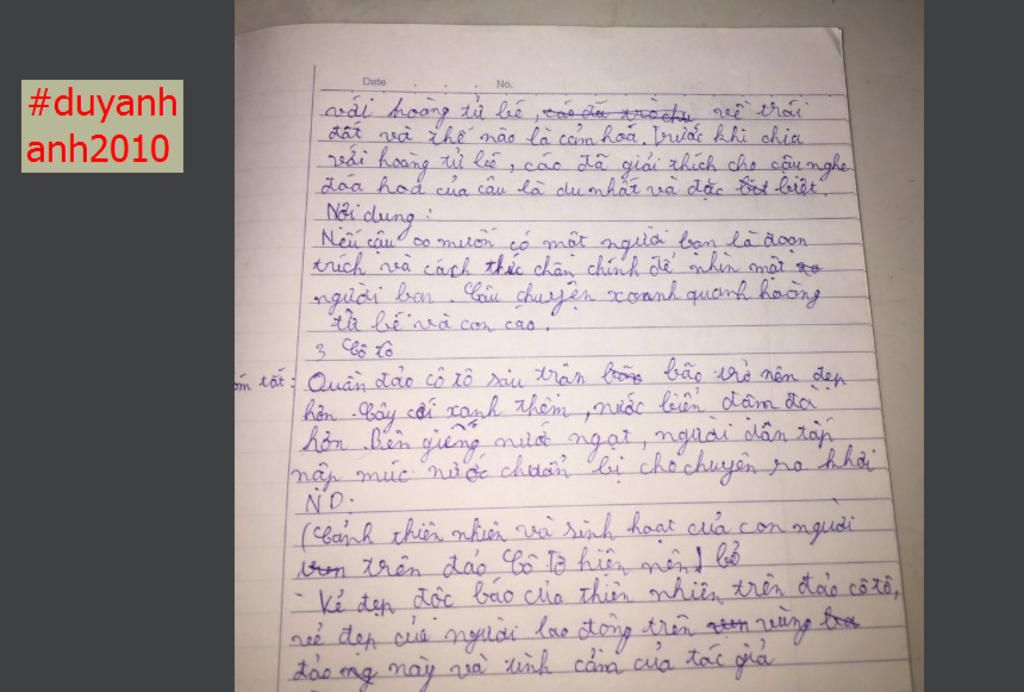 #duyanh
anh2010
Date No.
với hoàng tử bé, về trái
đất và thế nào là cảm hoá. Trước khi chia
với hoàng tử bé, cáo đã giải thích cho cậu nghe
đoá hoa của cậu là duy nhất và đặc biệt.
Nội dung:
Nếu cậu muốn có một người bạn là đoạn
trích và cách thức chân chính để nhìn một
người bạn. Câu chuyện xoanh quanh hoàng
tử bé và con cáo.
3 Cô tô
óm tắt: Quần đảo cô tô sau trận bão trở nên đẹp
hơn. Cây cối xanh thêm, nước biển đậm đà
hơn. Bên giếng nước ngọt, người dân tấp
nập múc nước chuẩn bị cho chuyên ra khơi
ND:
(Cảnh thiên nhiên và sinh hoạt của con người
trên đảo Cô Tô hiện nên
- Vẻ đẹp độc báo của thiên nhiên trên đảo cô tô,
vẻ đẹp của người lao động trên vùng
đảo này và tình cảm của tác giả